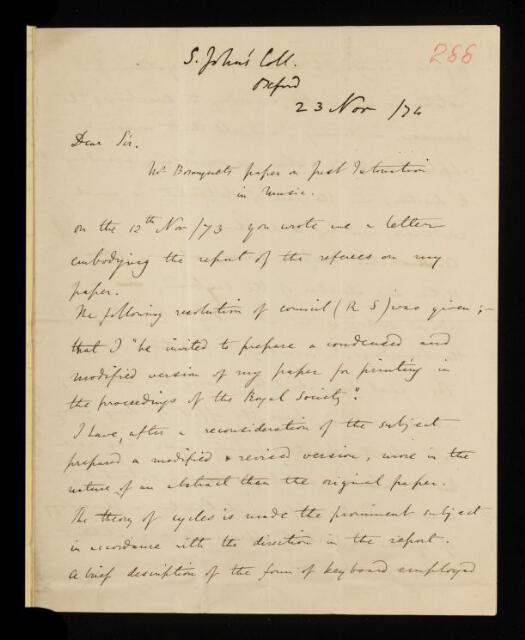 266
S. John's Coll.
Oxford
23 Nov /74
Dear Sir.
Mr Bosanquet's paper on Just Intonation
in Music.
on the 12th Nov /73 you wrote me a letter
embodying the report of the referees on my
paper.
The following resolution of council (R S) was given ;-
that I "be invited to prepare a condensed and
modified version of my paper for printing in
the proceedings of the Royal Society".
I have, after a reconsideration of the subject
prepared a modified & revised version, more in the
nature of an abstract than the original paper.
The theory of cycles is made the prominent subject
in accordance with the direction in the report.
A brief description of the form of keyboard employed